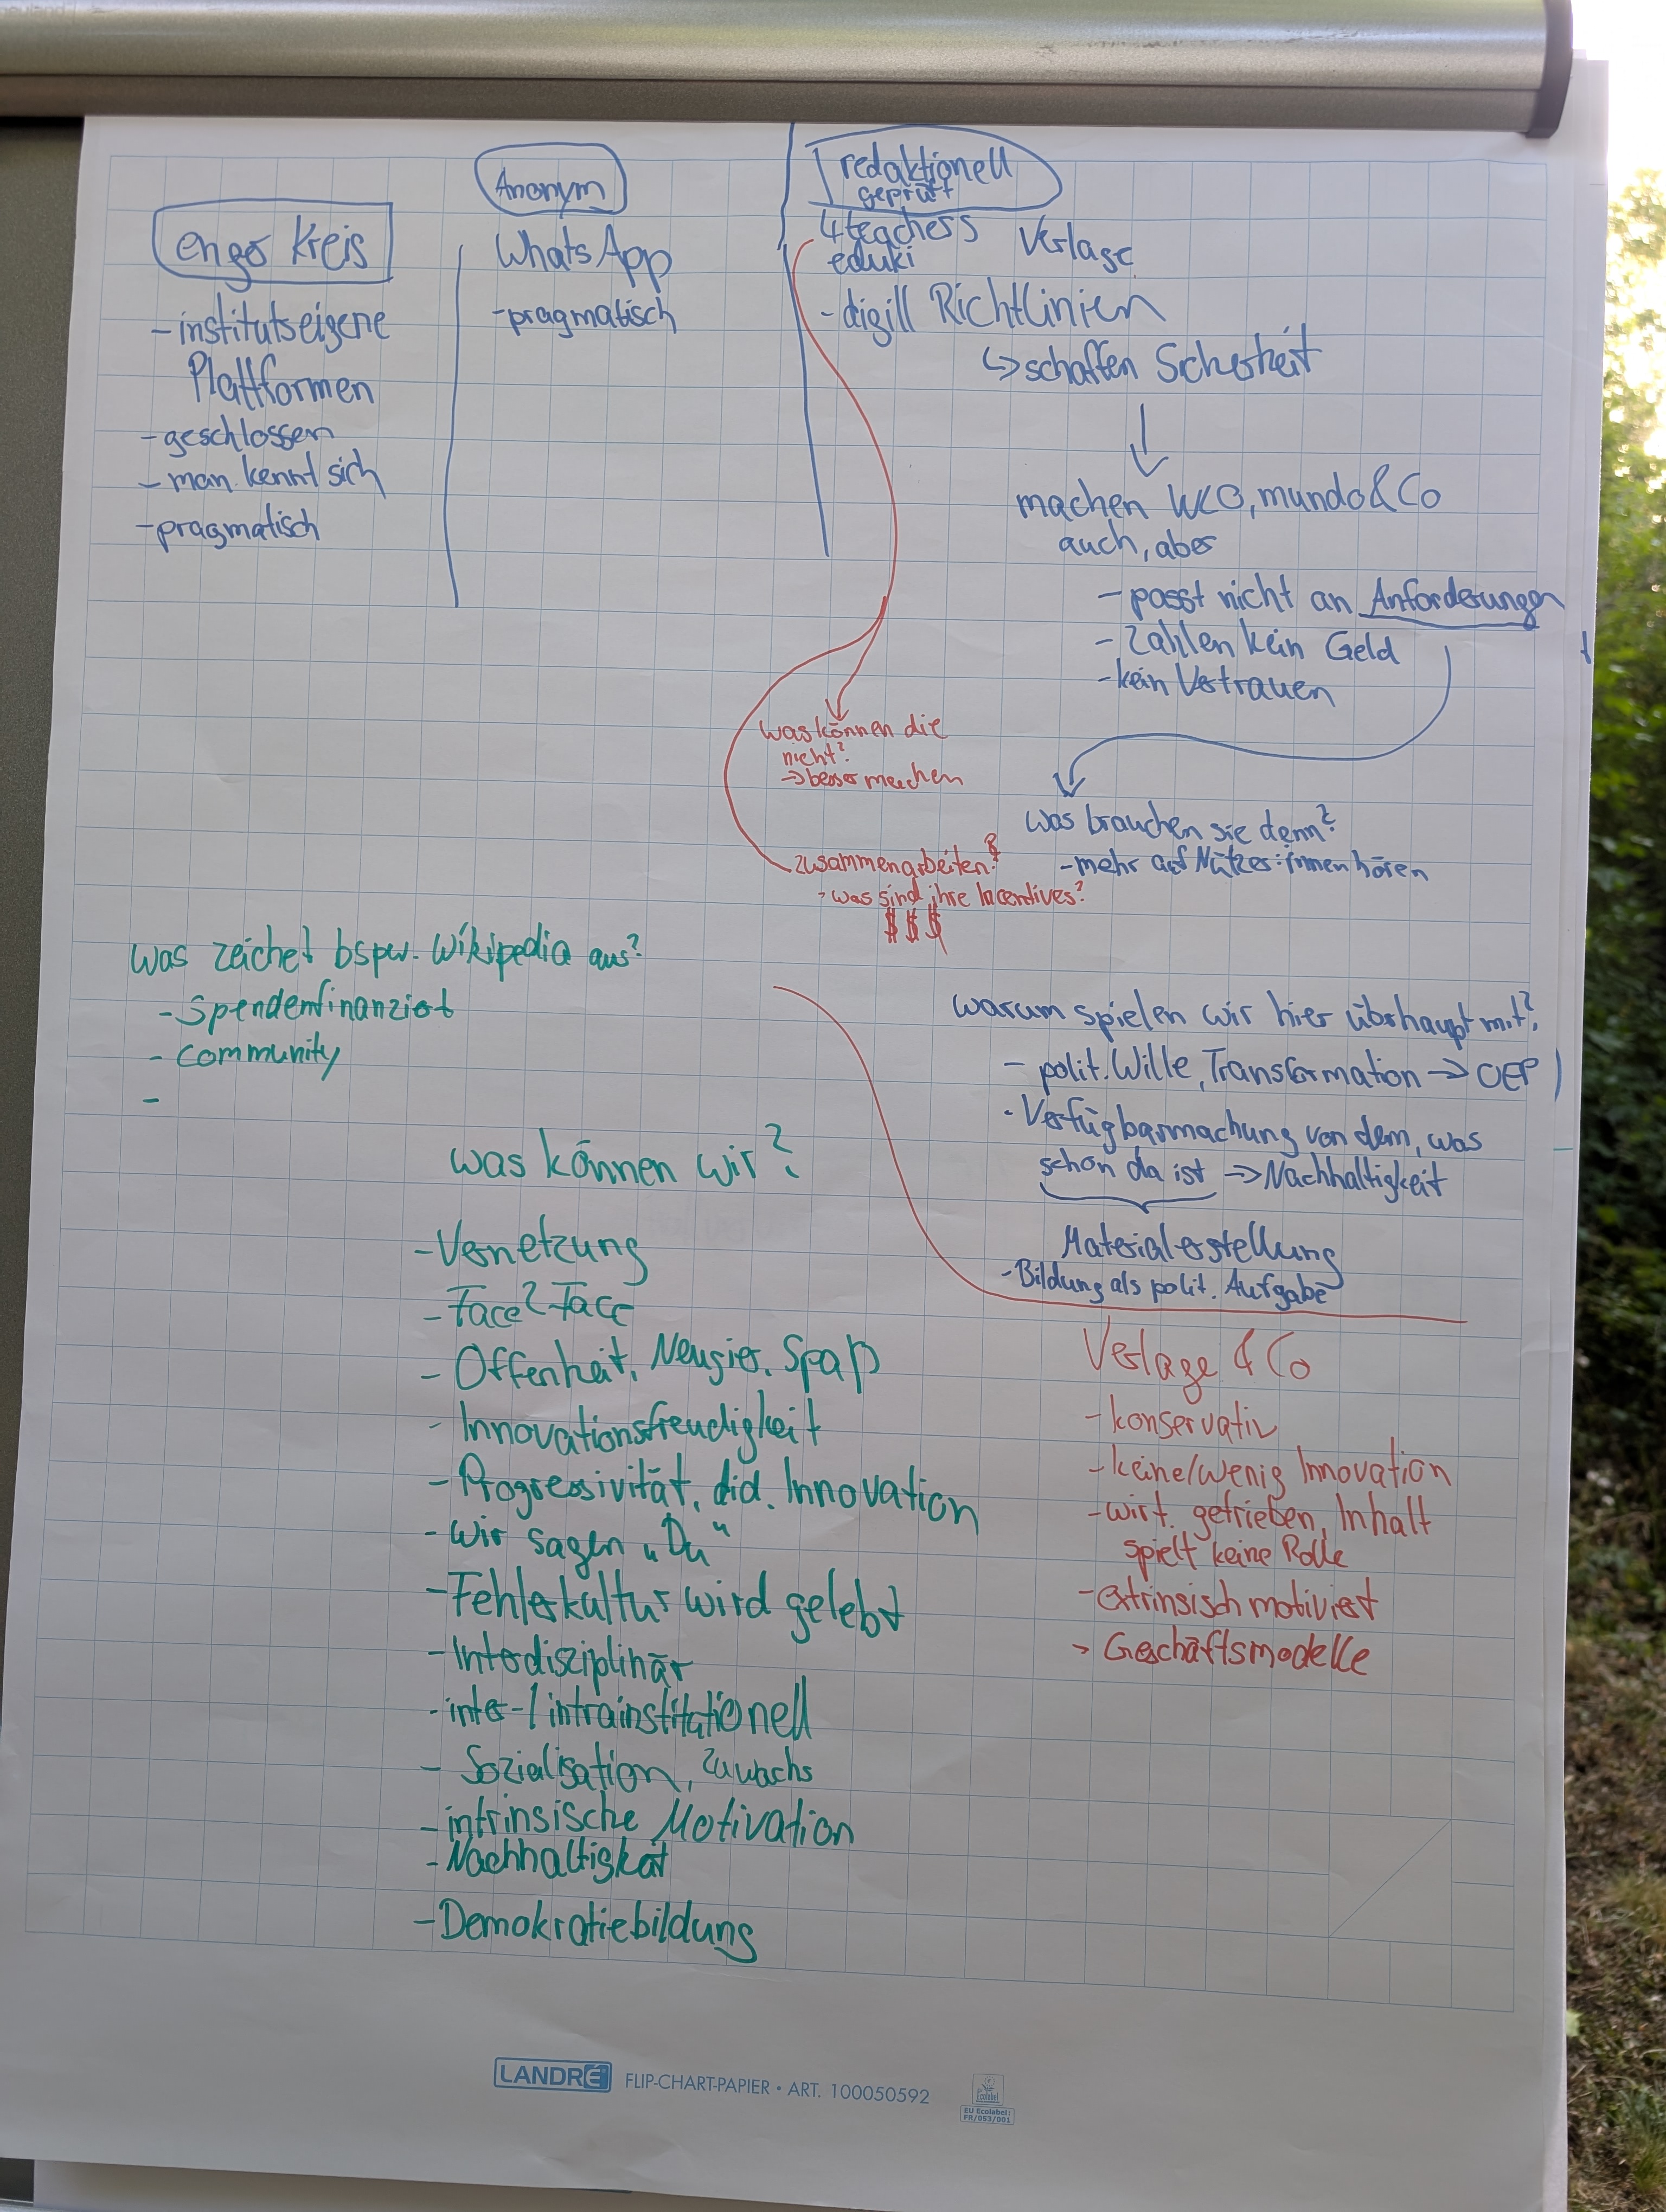 enger Kreis
- institutseigene
Plattformen
- geschlossen
- man kennt sich
- pragmatisch
Anonym
WhatsApp
- pragmatisch
redaktionell
geprüft
4teachers
eduki
Verlage
- digill Richtlinien
↳ schaffen Sicherheit
machen WLO, mundo & Co
auch, aber
- passt nicht an Anforderungen
- Zahlen kein Geld
- kein Vertrauen
was können die
nicht?
→ besser machen
was brauchen sie denn?
- mehr auf Nutzer:innen hören
zusammenarbeiten?
- was sind ihre Incentives?
$ $ $
was zeichet bspw. Wikipedia aus?
- Spendenfinanziert
- Community
-
warum spielen wir hier überhaupt mit?
- polit. Wille, Transformation → OEP
- Verfügbarmachung von dem, was
schon da ist → Nachhaltigkeit
Materialerstellung
- Bildung als polit. Aufgabe
was können wir?
- Vernetzung
- Face2Face
- Offenheit, Neugier, Spaß
- Innovationsfreudigkeit
- Progressivität, did. Innovation
- wir sagen „Du"
- Fehlerkultur wird gelebt
- Interdisziplinär
- inter-/intrainstitutionell
- Sozialisation, Zuwachs
- intrinsische Motivation
- Nachhaltigkeit
- Demokratiebildung
Verlage & Co
- konservativ
- keine/wenig Innovation
- wirt. getrieben, Inhalt
spielt keine Rolle
- extrinsisch motiviert
> Geschäftsmodelle
LANDRÉ FLIP-CHART-PAPIER • ART. 100050592
EU Ecolabel:
FR/053/001